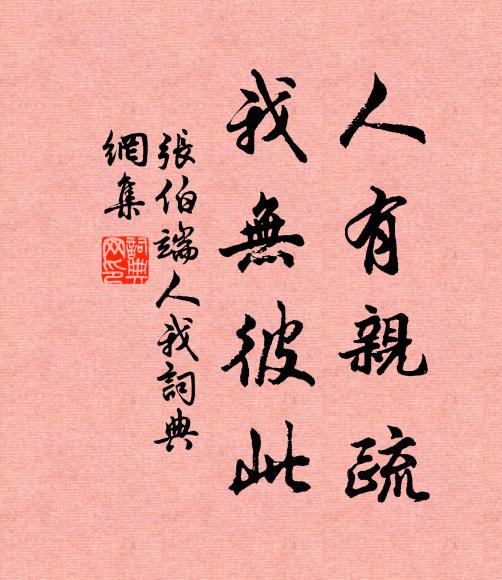 人有親疏
我無彼此
張伯端人我詞典
網集
詞典
网印